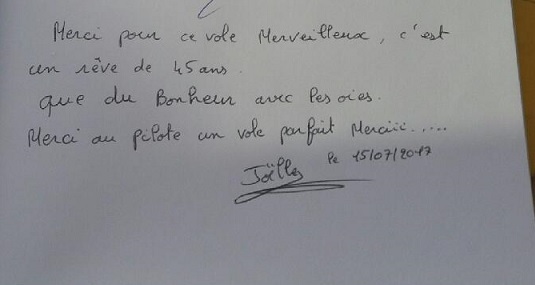 Merci pour ce vole Merveilleux, c'est
un rêve de 45 ans.
que du Bonheur avec les oies.
Merci au pilote un vole parfait Merciii.....
Joëlle le 15/07/2017